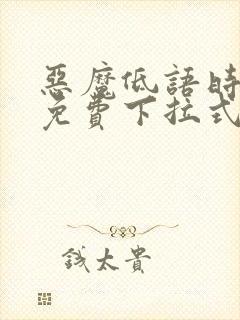 惡魔低語時
免費下拉式
錢太貴